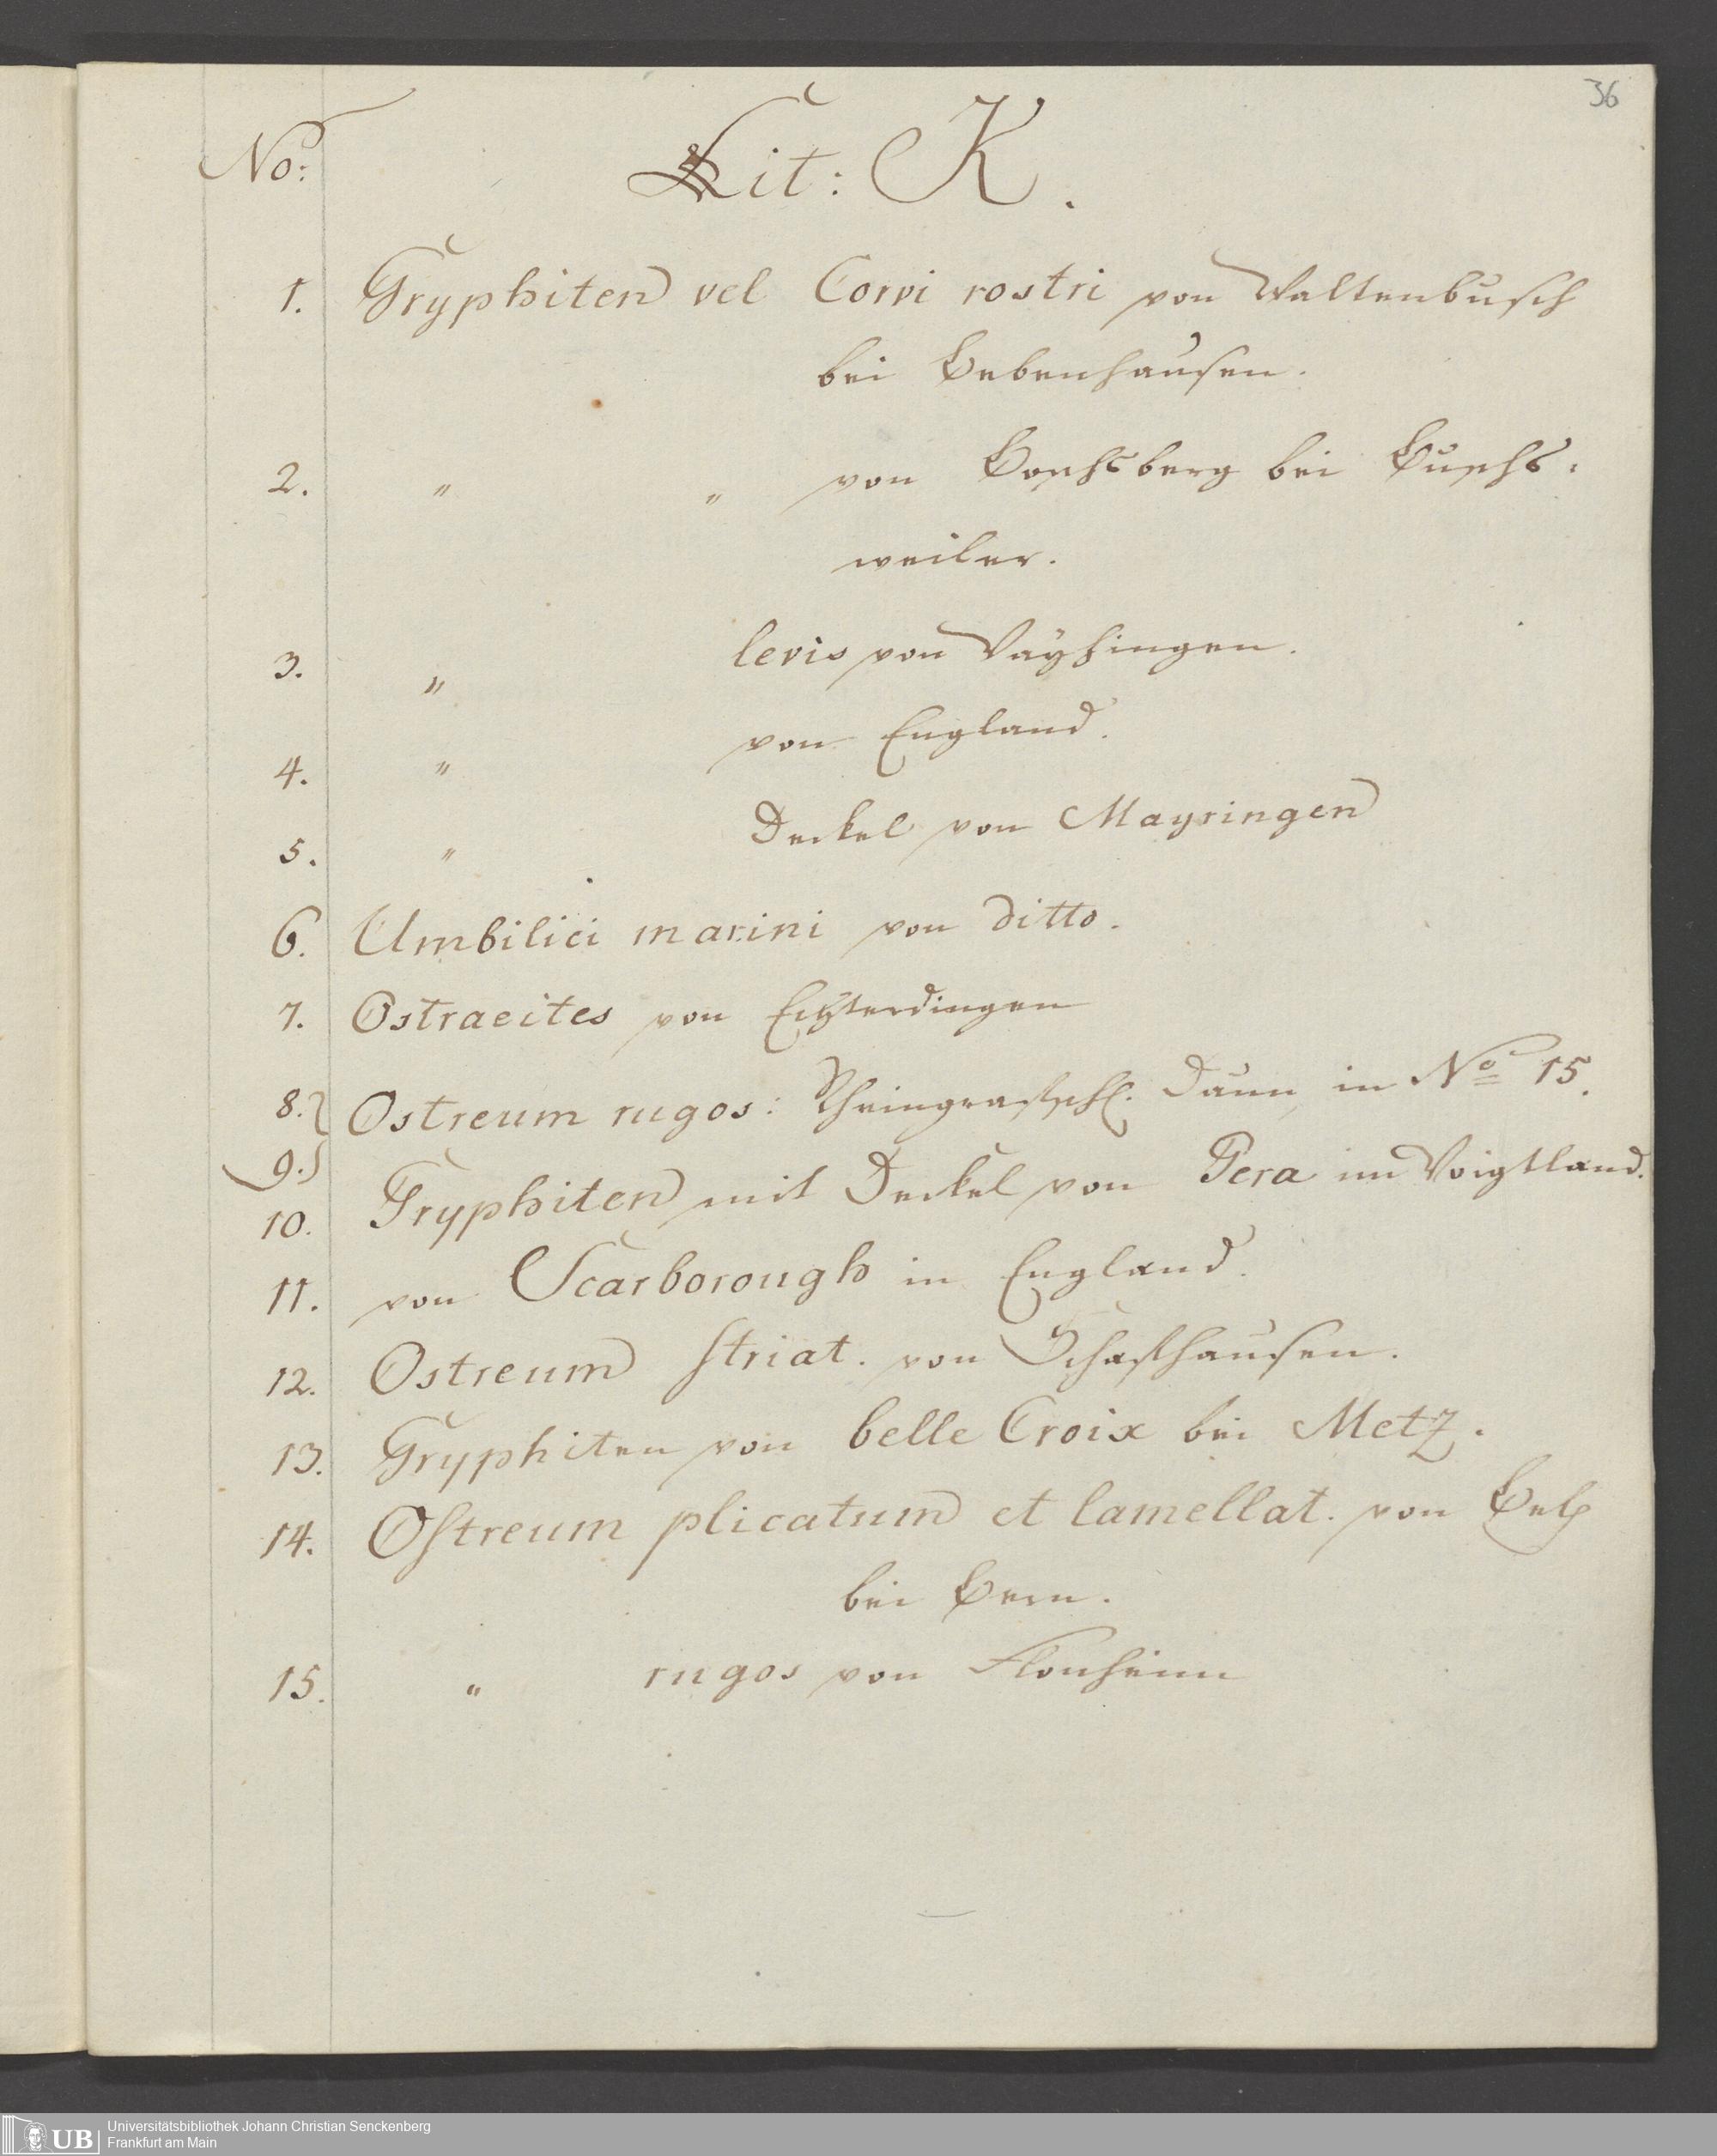 36
No:
Lit: K.
1. Gryphiten vel Corvi rostri von Waltenbusch
bei Bebenhausen.
2. " " von Bochsberg bei Buchs-
weiler.
3. " levis von Vayhingen.
4. " von England.
5. " Deckel von Mayringen
6. Umbilici marini von ditto.
7. Ostracites von Echterdingen
8. Ostreum rugos: Rheingrafschl. Daun, in No 15.
9.
10. Gryphiten mit Deckel von Gera im Voigtland.
11. von Scarborough in England.
12. Ostreum striat. von Schafhausen.
13. Gryphiten von belle Croix bei Metz.
14. Ostreum plicatum et lamellat. von Belp
bei Bern.
15. " rugos von Flonheim
UB Universitätsbibliothek Johann Christian Senckenberg
Frankfurt am Main